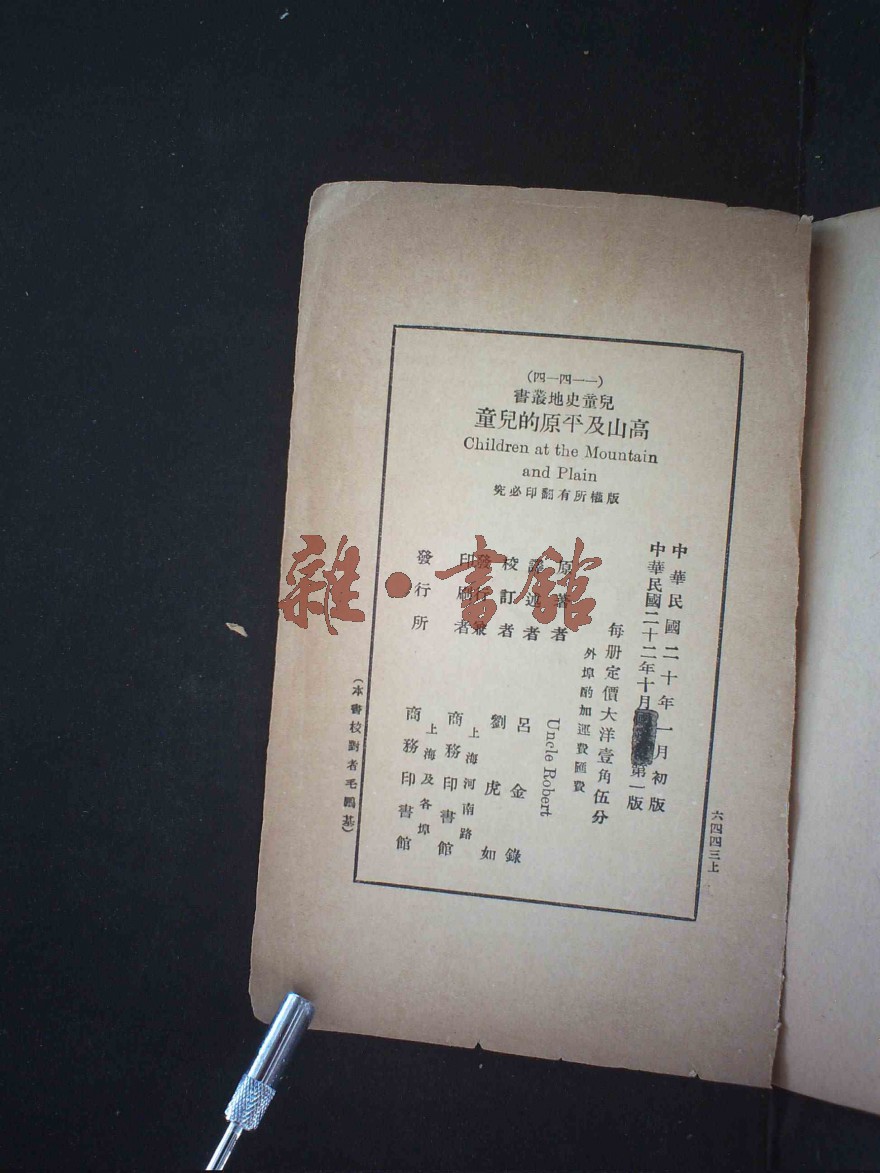 (四一四一一)
兒童史地叢書
高山及平原的兒童
Children at the Mountain
and Plain
版權所有翻印必究
中華民國二十年一月初版
中華民國二十二年十月第一版
每册定價大洋壹角伍分
外埠酌加運費匯費
原著者 Uncle Robert
譯述者 呂金錄
校訂者 劉虎如
發行兼印刷者 上海河南路商務印書館
發行所 上海及各埠商務印書館
(本書校對者毛鵬基)
六四四三上
雜·書館